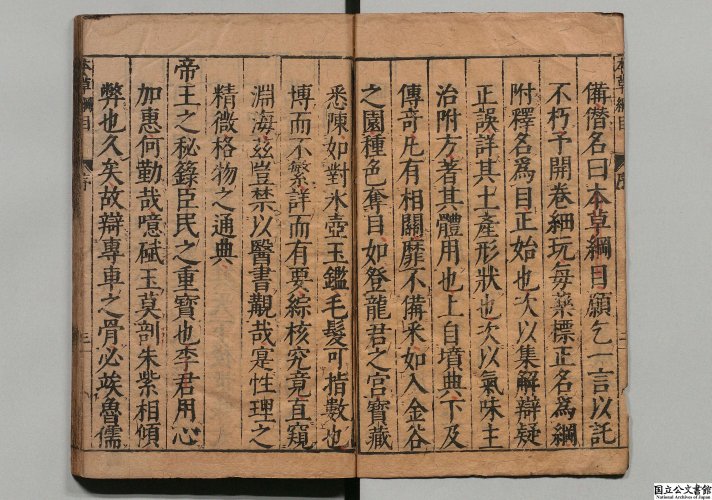 本草綱目
序
二
備僣名曰本草綱目願乞一言以託
不朽予開卷細玩每藥標正名爲綱
附釋名爲目正始也次以集解辯疑
正誤詳其土產形狀也次以氣味主
治附方著其體用也上自墳典下及
傳奇凡有相關靡不備采如入金谷
之園種色奪目如登龍君之宮寶藏
悉陳如對氷壺玉鑑毛髮可指數也
博而不繁詳而有要綜核究竟直窺
淵海玆豈禁以醫書覯哉寔性理之
精微格物之通典
帝王之秘籙臣民之重寶也李君用心
加惠何勤哉噫碔玉莫剖朱紫相傾
弊也久矣故辯專車之骨必竢魯儒
本草綱目
序
三
国立公文書館
National Archives of Japan